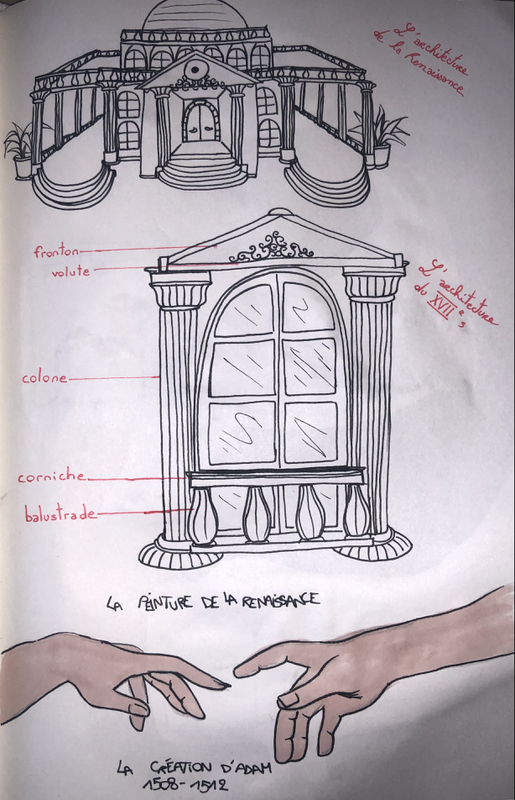 L'architecture
de la Renaissance
fronton
volute
L'architecture
du XVII e s
colone
corniche
balustrade
LA PEINTURE DE LA RENAISSANCE
LA CRÉATION D'ADAM
1508-1512